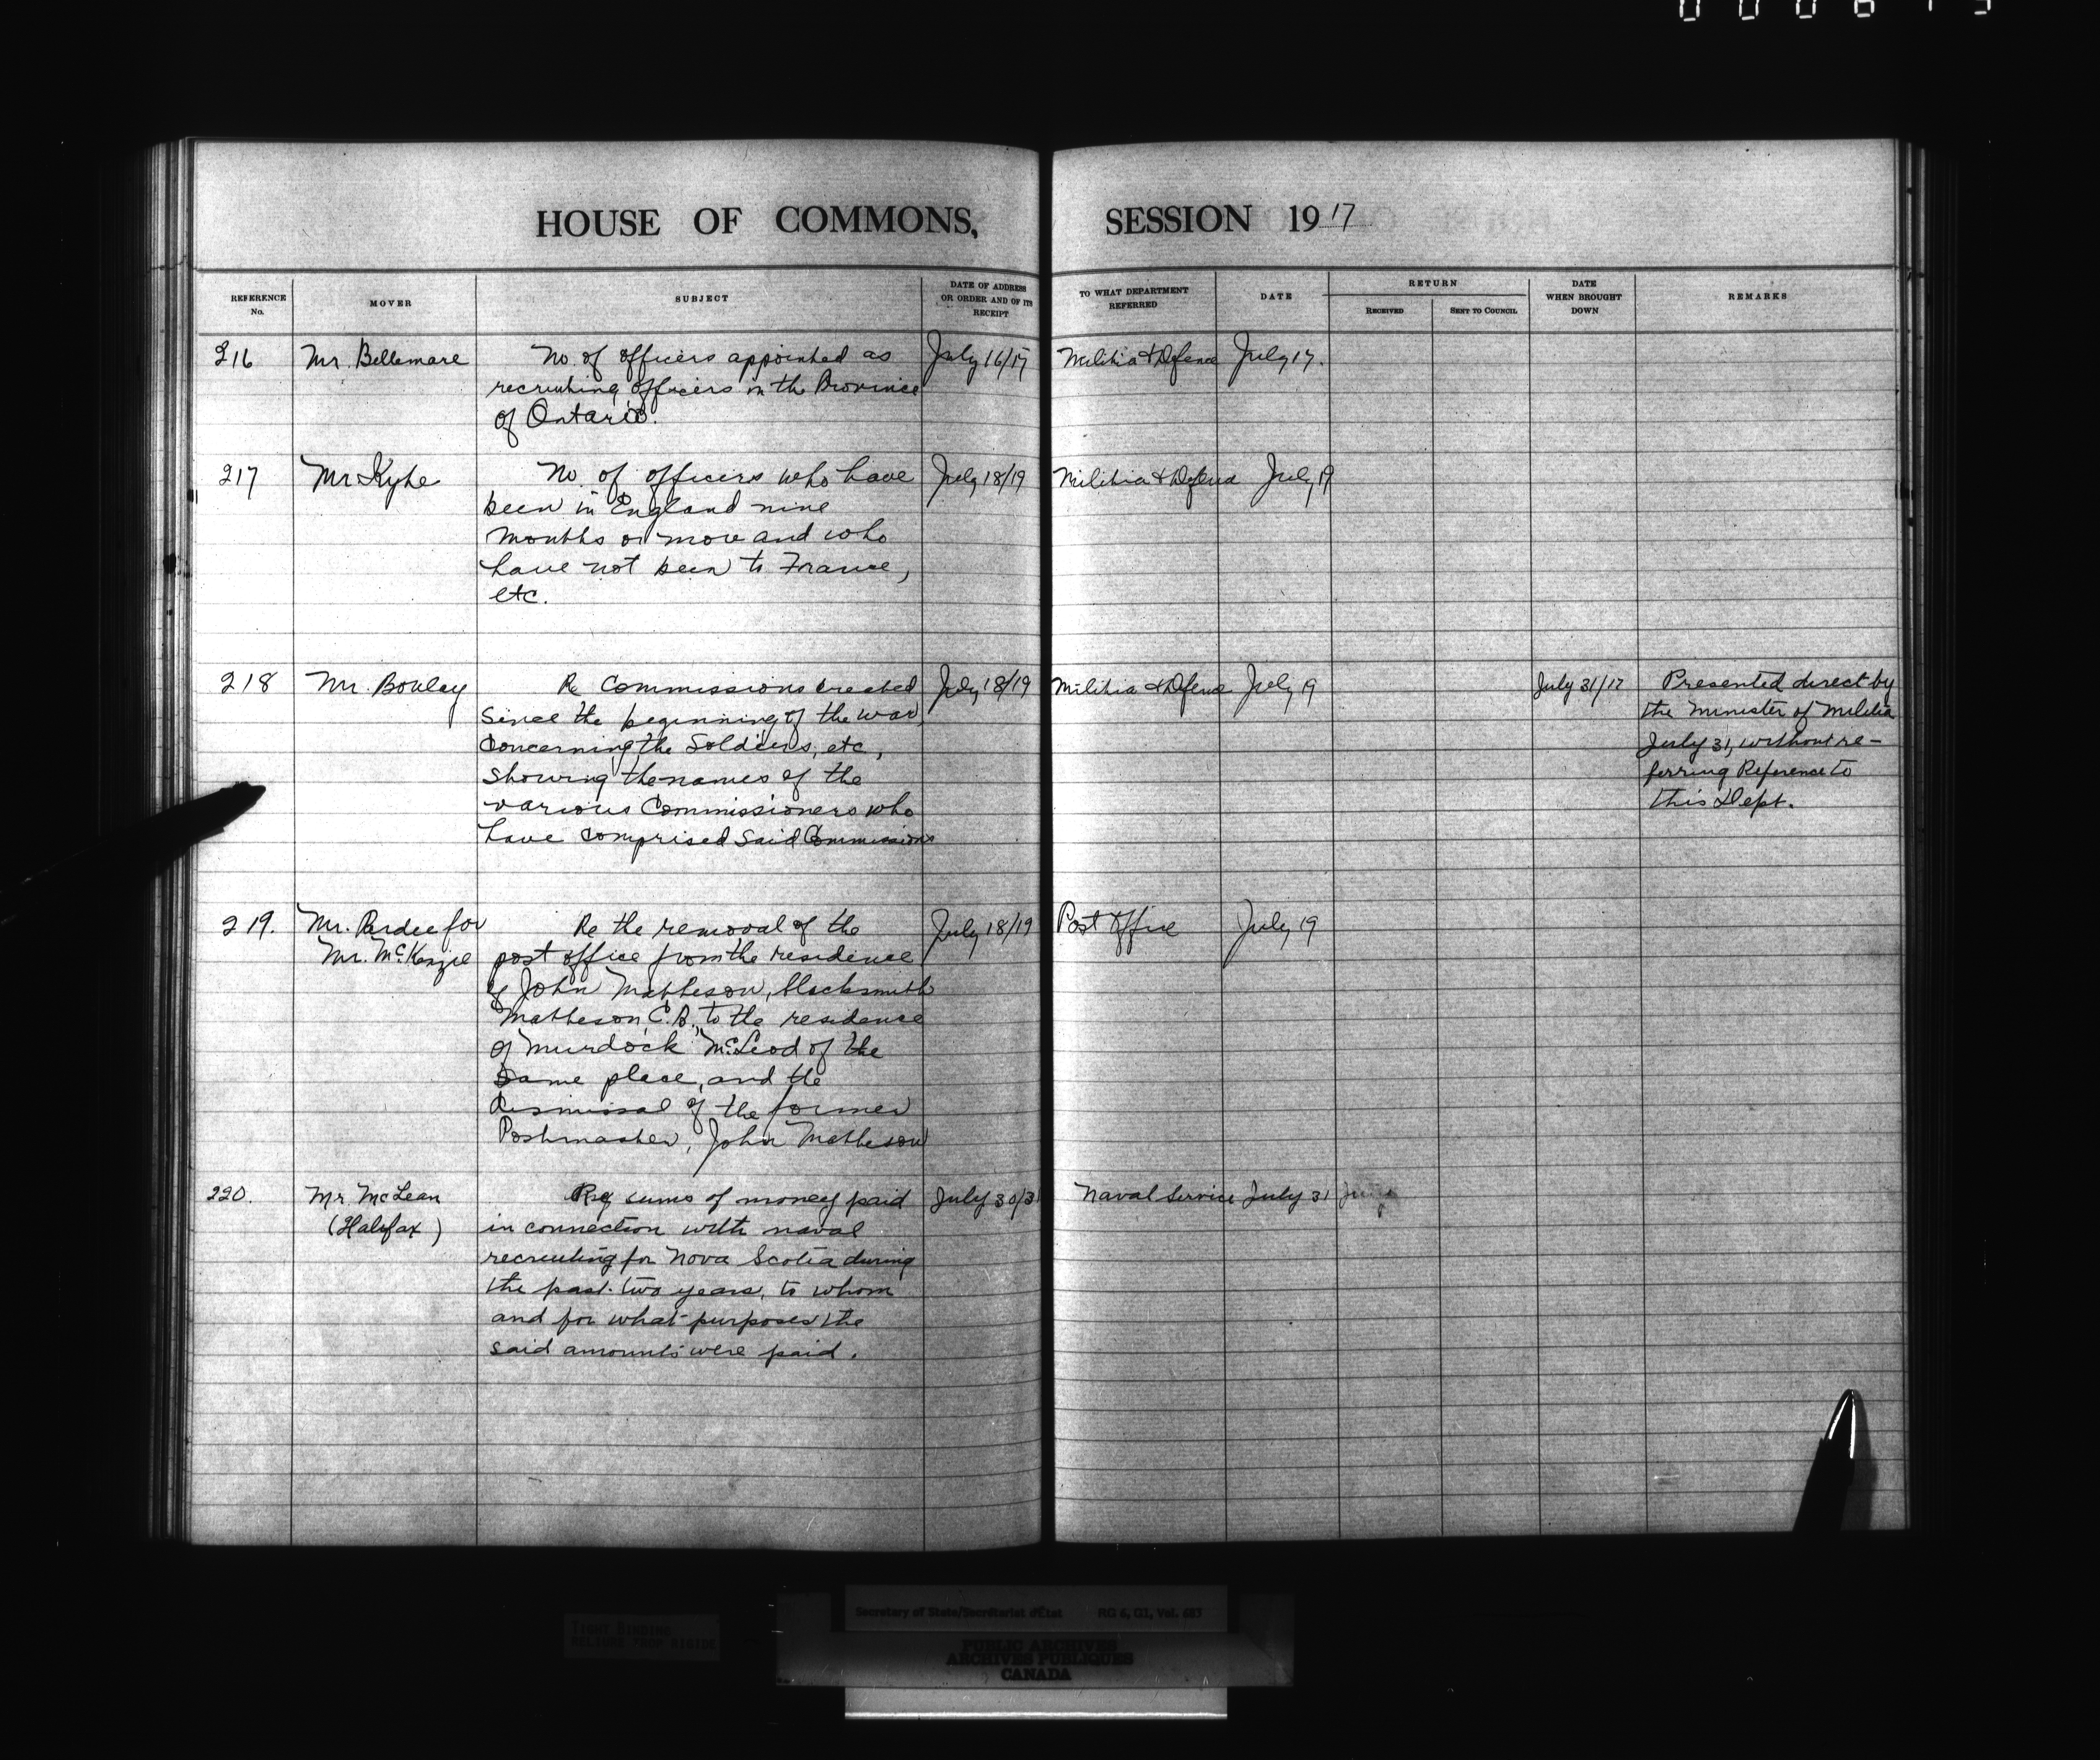 HOUSE OF COMMONS, SESSION 1917
REFERENCE No. MOVER SUBJECT DATE OF ADDRESS OR ORDER AND OF ITS RECEIPT TO WHAT DEPARTMENT REFERRED DATE RETURN RECEIVED SENT TO COUNCIL DATE WHEN BROUGHT DOWN REMARKS
216 Mr. Bellemare No of officers appointed as July 16/17 Militia & Defence July 17.
recruiting officers in the Province
of Ontario.
217 Mr Kyte No. of officers who have July 18/19 Militia & Defence July 19
been in England nine
months or more and who
have not been to France,
etc.
218 Mr. Boulay Re Commissions created July 18/19 Militia & Defence July 19 July 31/17 Presented direct by
since the beginning of the war the Minister of Militia
concerning the Soldiers, etc, July 31, without re-
showing the names of the ferring Reference to
various Commissioners who this Dept.
have comprised said Commissions
219. Mr. Pardee for Re the removal of the July 18/19 Post Office July 19
Mr. McKenzie post office from the residence
of John Matheson, blacksmith
Matheson, C.B. to the residence
of Murdock McLeod of the
same place, and the
dismissal of the former
Postmaster, John Matheson
220. Mr McLean Re sums of money paid July 30/31 Naval Service July 31
(Halifax) in connection with naval
recruiting for Nova Scotia during
the past two years, to whom
and for what purposes the
said amounts were paid.
TIGHT BINDING
RELIURE TROP RIGIDE
Secretary of State/Secrétariat d'État RG 6, G1, Vol. 683
PUBLIC ARCHIVES
ARCHIVES PUBLIQUES
CANADA